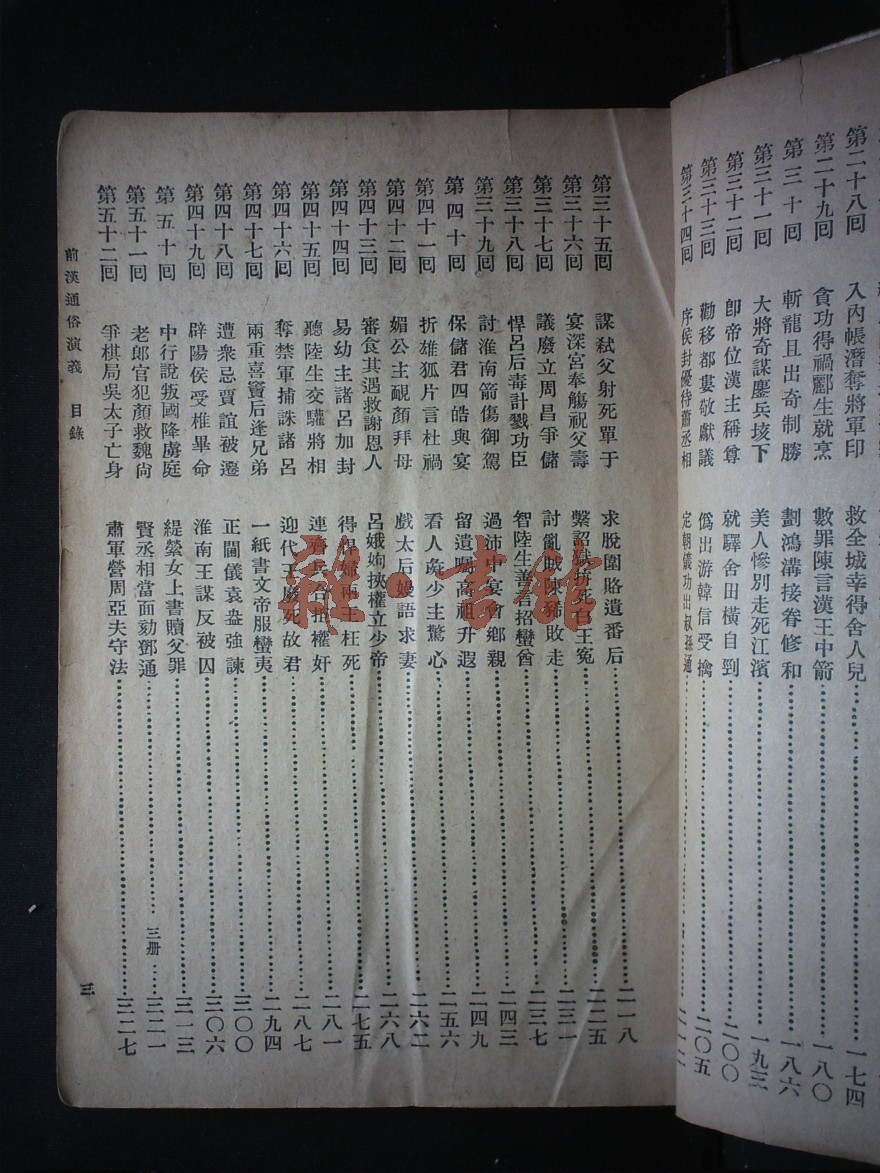 第二十八回 入內帳潛奪將軍印 救全城幸得舍人兒……一七四
第二十九回 貪功得禍酈生就烹 數罪陳言漢王中箭……一八〇
第三十回 斬龍且出奇制勝 劃鴻溝接眷修和……一八六
第三十一回 大將奇謀鏖兵垓下 美人慘別走死江濱……一九三
第三十二回 卽帝位漢主稱尊 就驛舍田橫自剄……二〇〇
第三十三回 勸移都婁敬獻議 僞出游韓信受擒……二〇五
第三十四回 序侯封優待蕭丞相 定朝儀功出叔孫通……二一二
第三十五回 謀弒父射死單于 求脫圍賂遺番后……二一八
第三十六回 宴深宮奉觴祝父壽 繫詔獄拚死白王冤……二二五
第三十七回 議廢立周昌爭儲 討亂賊陳豨敗走……二三一
第三十八回 悍呂后毒計戮功臣 智陸生善言招蠻酋……二三七
第三十九回 討淮南箭傷御駕 過沛中宴會鄉親……二四三
第四十回 保儲君四皓與宴 留遺囑高祖升遐……二四九
第四十一回 折雄狐片言杜禍 看人彘少主驚心……二五六
第四十二回 媚公主靦顏拜母 戲太后嫚語求妻……二六二
第四十三回 審食其遇救謝恩人 呂娥姁挾權立少帝……二六八
第四十四回 易幼主諸呂加封 得悍婦兩王枉死……二七五
第四十五回 聽陸生交驩將相 連齊兵合拒權奸……二八一
第四十六回 奪禁軍捕誅諸呂 迎代王廢死故君……二八七
第四十七回 兩重喜竇后逢兄弟 一紙書文帝服蠻夷……二九四
第四十八回 遭衆忌賈誼被遷 正閫儀袁盎強諫……三〇〇
第四十九回 辟陽侯受椎畢命 淮南王謀反被囚……三〇六
第五十回 中行說叛國降虜庭 緹縈女上書贖父罪……三一三
第五十一回 老郎官犯顏救魏尙 賢丞相當面劾鄧通……三册……三二一
第五十二回 爭棋局吳太子亡身 肅軍營周亞夫守法……三二七
前漢通俗演義 目錄
三
雜·書館